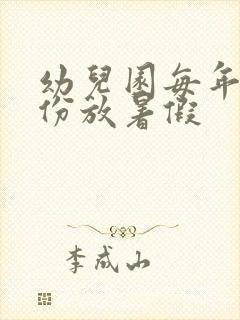 幼兒園每年
份放暑假
李成山